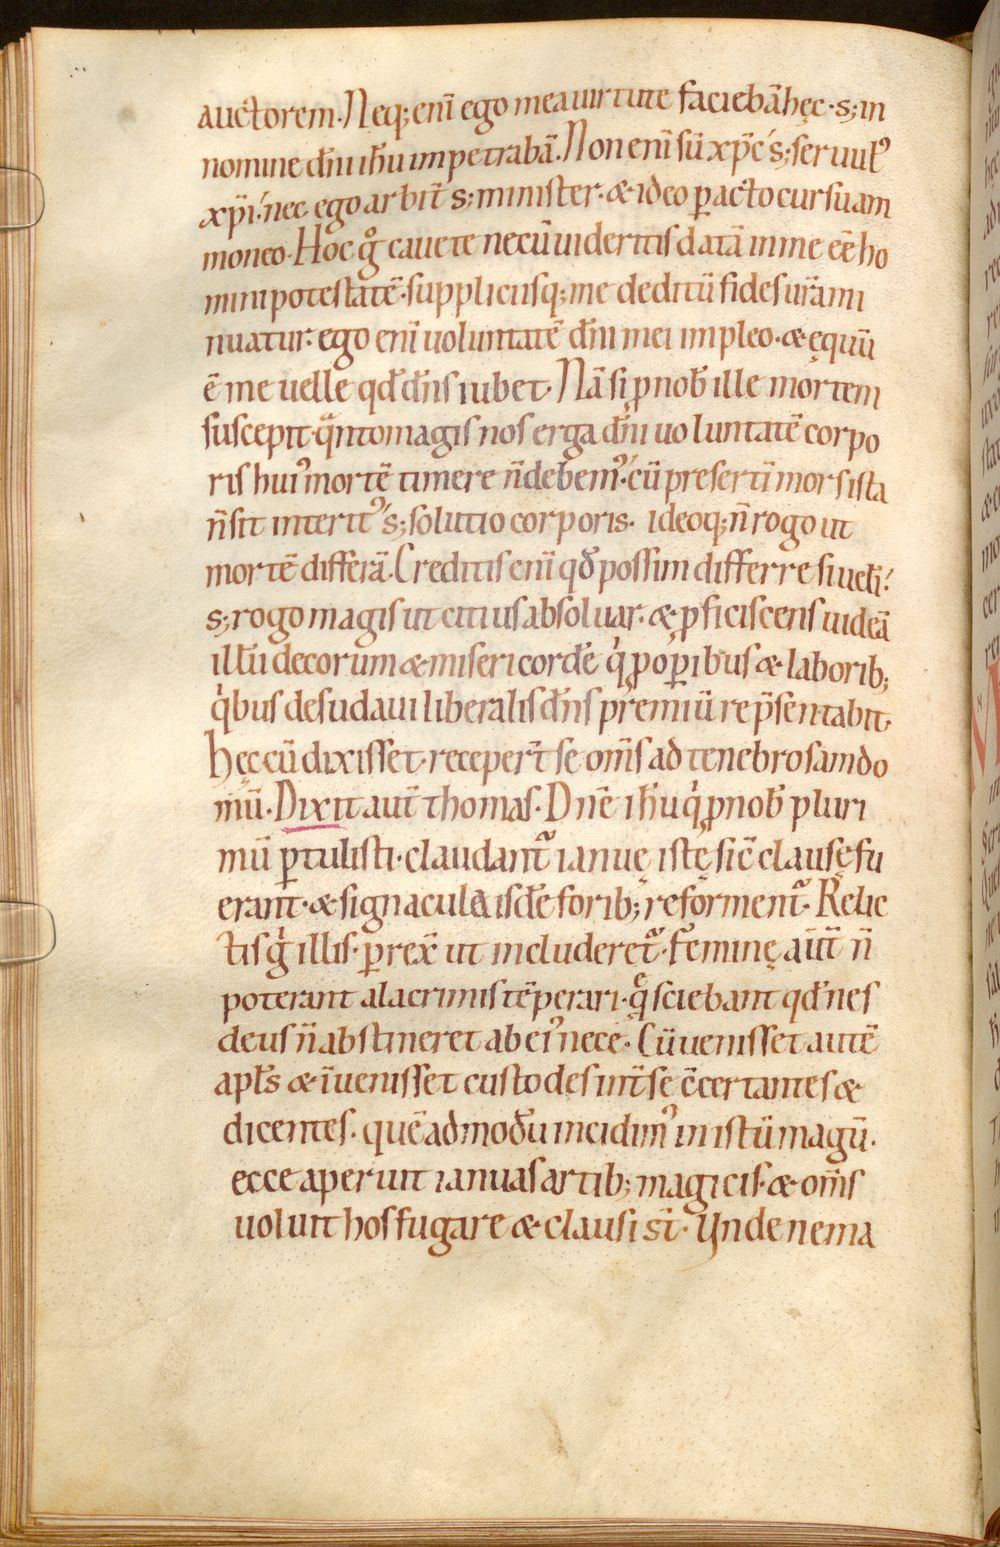 auctorem. Neq; eni̅ ego mea uirtute facieba̅ hęc. s; in
nomine dn̅i ih̅u impetraba̅. Non eni̅ su̅ xp̅c s; seruul᾽
xp̅i. nec ego arbit̅ s; minister. & ideo ꝑacto cursu am
moneo. Hoc gͦ cauete ne cu̅ uideritis data̅ in me ee̅ ho
mini potestate̅. suppliciisq; me deditu̅ fides ur̅a mi
nuatur. ego eni̅ uoluntate̅ dn̅i mei impleo. & ęquu̅
e̅ me uelle qd̅ dn̅s iubet. Na̅ si ꝓ nob̅ ille mortem
suscepit. qͣnto magis nos erga dn̅i uoluntate̅ corpo
ris hui᾽ morte̅ timere n̅ debem᾽. cu̅ preserti̅ mors ista
n̅ sit interit᾽ s; solutio corporis. ideoq; n̅ rogo ut
morte̅ differa̅. Creditis eni̅ qd̅ possim differre si ueli̅?
s; rogo magis ut citius absoluar. & ꝓficiscens uidea̅
illu̅ decorum & misericorde̅ qͥ ꝓ oꝑibus & laborib;
qͥbus desudaui liberalis dn̅s premiu̅ rep̅sentabit.
hęc cu̅ dixisset. receper̅t se om̅s ad tenebrosam do
mu̅. Dixit aut̅ thomas. Dn̅e ih̅u qͥ ꝓ nob̅ pluri
mu̅ ꝑtulisti. claudant᷑ ianuę istę sic̅ clausę fu
erant. & signacula isde̅ forib; reforment᷑. Relic
tis gͦ illis. ꝑrex̅ ut includeret᷑. Feminę aut̅ n̅
poterant a lacrimis te̅perari. qͤ sciebant qd̅ nes
deus n̅ abstineret ab ei᾽ nece. Cu̅ uenisset aute̅
apl̅s & i̅uenisset custodes int̅ se c̅certantes &
dicentes. que̅admodu̅ incidim᾽ in istu̅ magu̅.
ecce aperuit ianuas artib; magicis. & om̅s
uoluit hos fugare & clausi st̅. Unde nema